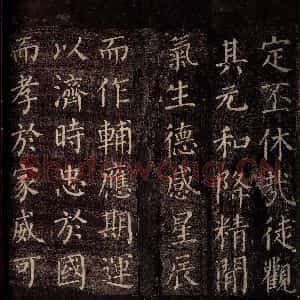 定丕休哉徒觀
其元和降精間
氣生德感星辰
而作輔應期運
以濟時忠於國
而孝於家威可